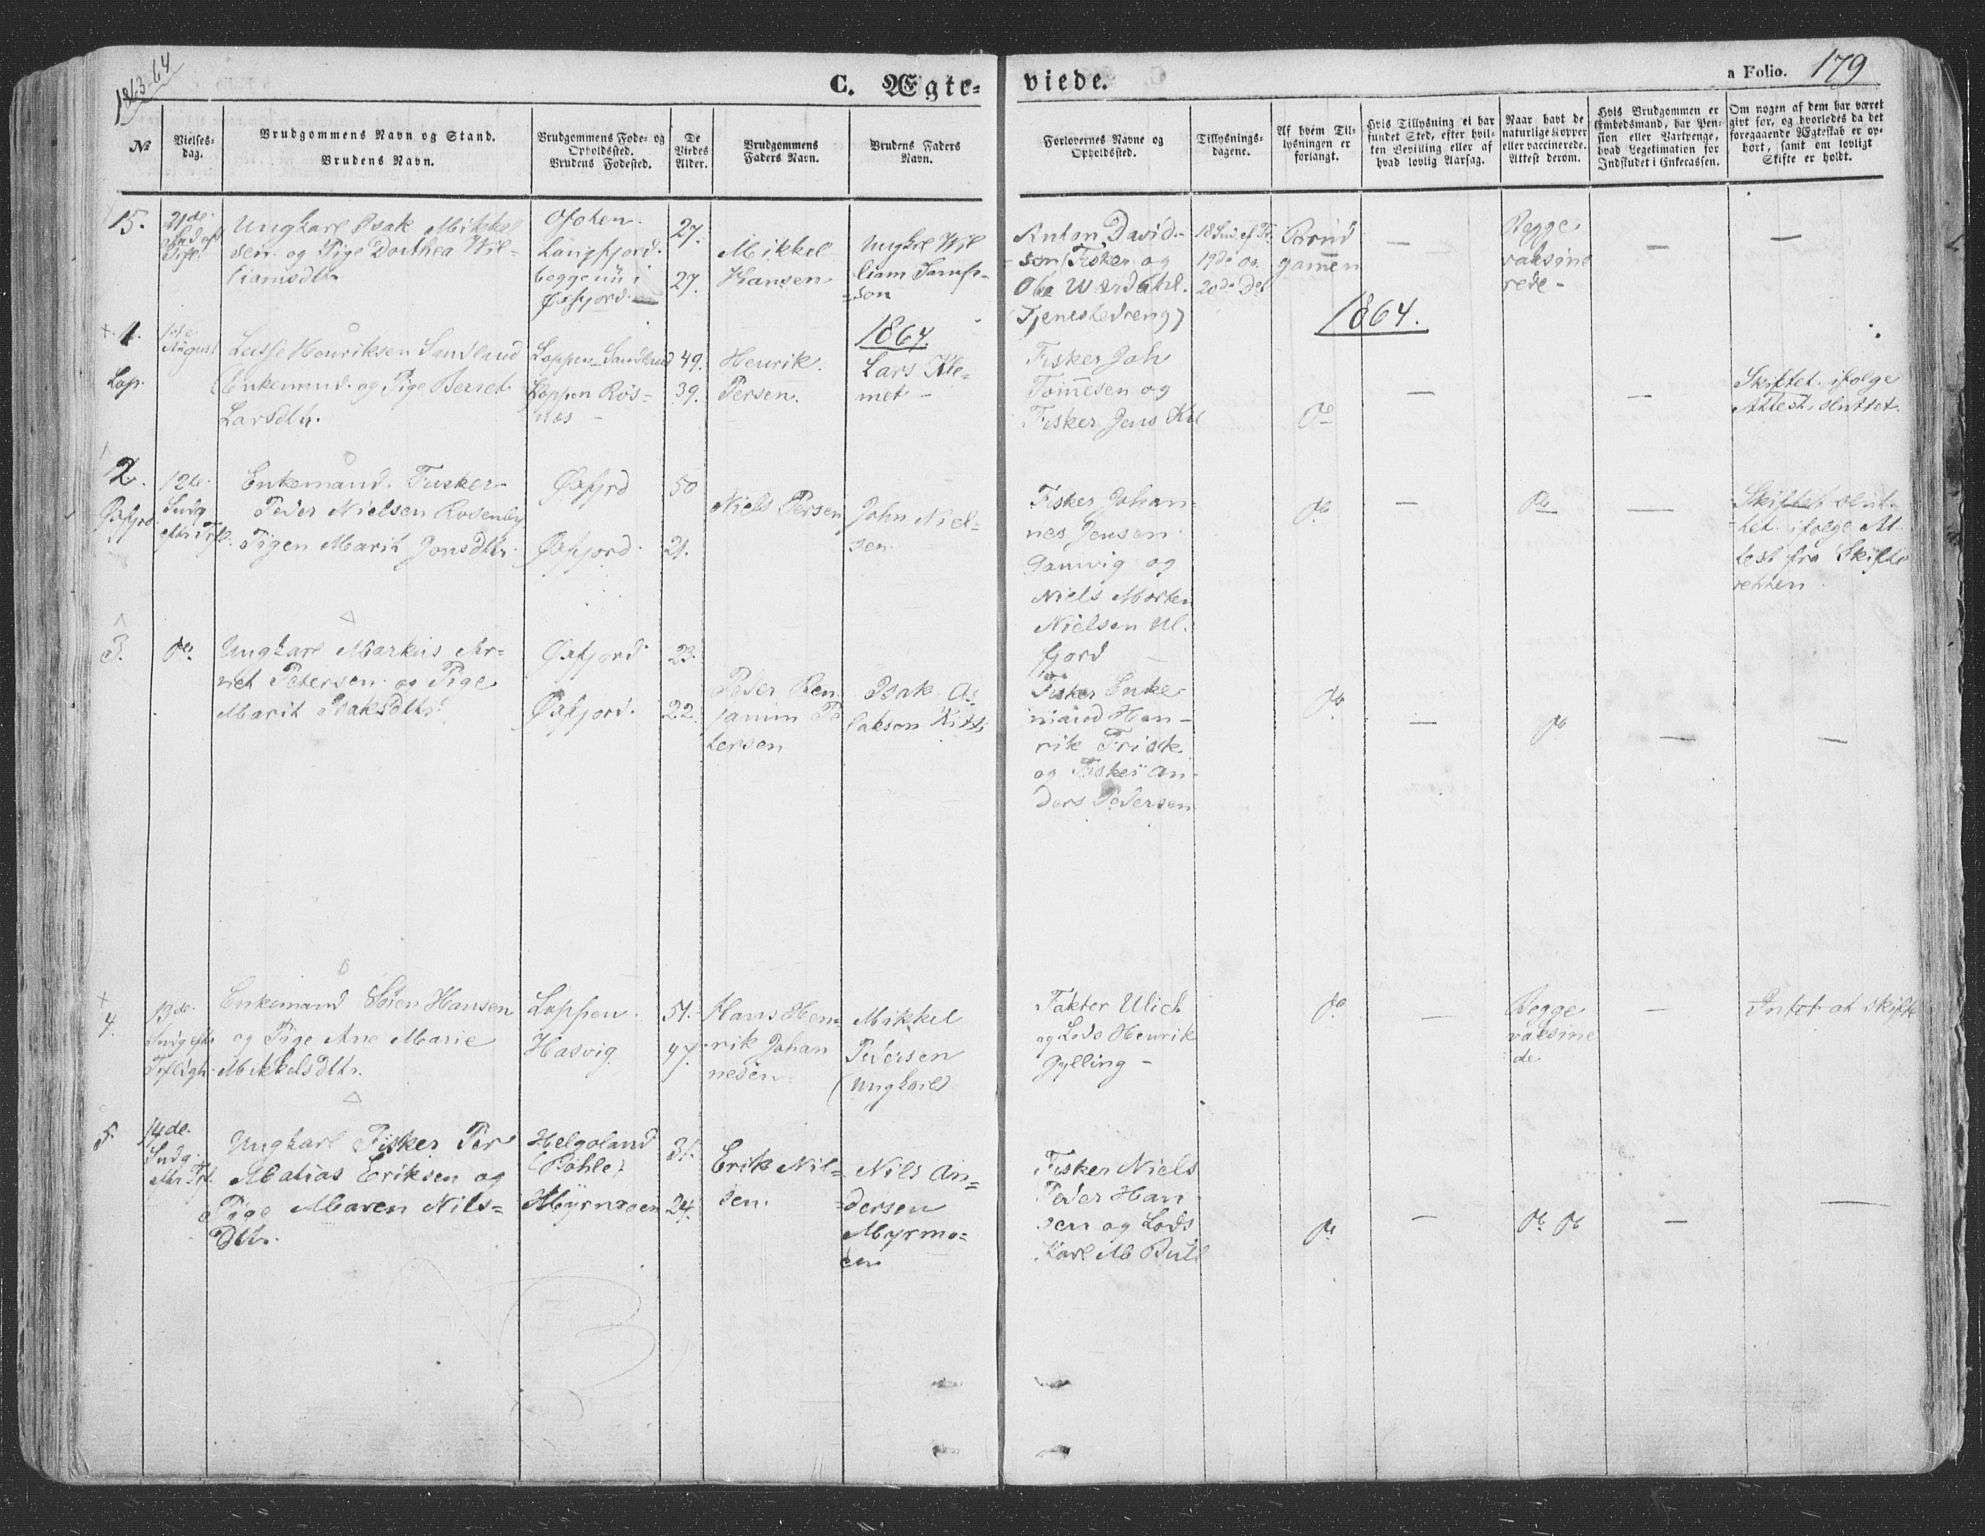 1863-64
C. Ægte-
viede.
a Folio. 179
No
Vielses-
dag.
Brudgommens Navn og Stand.
Brudens Navn.
Brudgommens Føde- og
Opholdssted.
Brudens Fødested.
De
Viedes
Alder.
Brudgommens
Faders Navn.
Brudens Faders
Navn.
Forlovernes Navne og
Opholdssted.
Tillysnings-
dagene.
Af hvem Til-
lysningen er
forlangt.
Hvis Tillysning ei har
fundet Sted, efter hvil-
ken Bevilling eller af
hvad lovlig Aarsag.
Naar havt de
naturlige Kopper
eller vaccinerede.
Attest derom.
Hvis Brudgommen er
Embedsmand, har Pen-
sion eller Vartpenge,
hvad Legetimation for
Indskudet i Enkecassen.
Om nogen af dem har været
givt før, og hvorledes da det
foregaaende Ægteskab er op-
hørt, samt om lovligt
Skifte er holdt.
15.
21de
Ungkarl Isak Mikkel
sen og Pige Dorthea Wil-
liamsdtr
Ofoten.
Langfjord.
begge nu i
Øxfjord.
27.
27.
Mikkel
Hansen
Ungkrl Wil
liam
son
Anton David-
sen (Fisker og
Ole Wærdahl.
Tjenestedreng)
19de og
20de Do
Brud
gomen
—
Begge
vaksine
rede-
—
—
1864.
1864.
1.
Lop.
August
Lasse Henriksen Sandland
Enkemand og Pige Berret
Larsdtr.
Loppen Sandland
Loppen Røs-
næs -
49.
39.
Henrik
Persen.
Lars Kle-
met -
Fisker Joh
Tommesen og
Fisker Jens
Do
—
—
Skiftet ifølge
Attest sluttet.
2.
Øxfjrd.
12te
Sndg
eftr Trf.
Enkemand Fisker
Peder Nielsen Rosenby
Pigen Marit Jonsdtr.
Øxfjrd
Øxfjord.
50
21.
Niels Persen
John Niel-
sen.
Fisker Johan-
nes Jensen
og
Niels Morten
Nielsen Ul.
fjord
Do
—
Do
—
Skiftet slut-
tet ifølge At-
test fra Skifte
retten
3.
Do.
Ungkarl Markus Ar-
net Petersen og Pige
Marit Isaksdtr.
Øxfjord
Øxfjord.
23.
22.
Peder Ben
jamin Pe
tersen
Isak As
laksen
Fisker Enke
mand Hen-
rik Frisk
og Fisker An-
ders Pedersen
Do
—
Do
—
—
4.
13de
Enkemand Søren Hansen
og Pige Ane Marie
Mikkelsdtr.
Loppen.
Hasvig
51.
47.
Hans Hen-
rik Johan
nesen
Mikkel
Pedersen
(Ungkarl)
Fakter Ulich
og Lods Henrik
Gylling -
Do
—
Begge
vaksine
de
—
Intet at skifte
5
14de.
Sndg.
eftr Trf.
Ungkarl Fisker Per
Matias Eriksen og
Pige Maren Nils-
Dtr.
Helgoland
Myrmoen
31.
24.
Erik Nil-
sen.
Nils An-
dersen
Myrmo-
en
Fisker Niels
Peder Han
sen og Lods
Karl M Bull
Do
—
Do Do
—
—